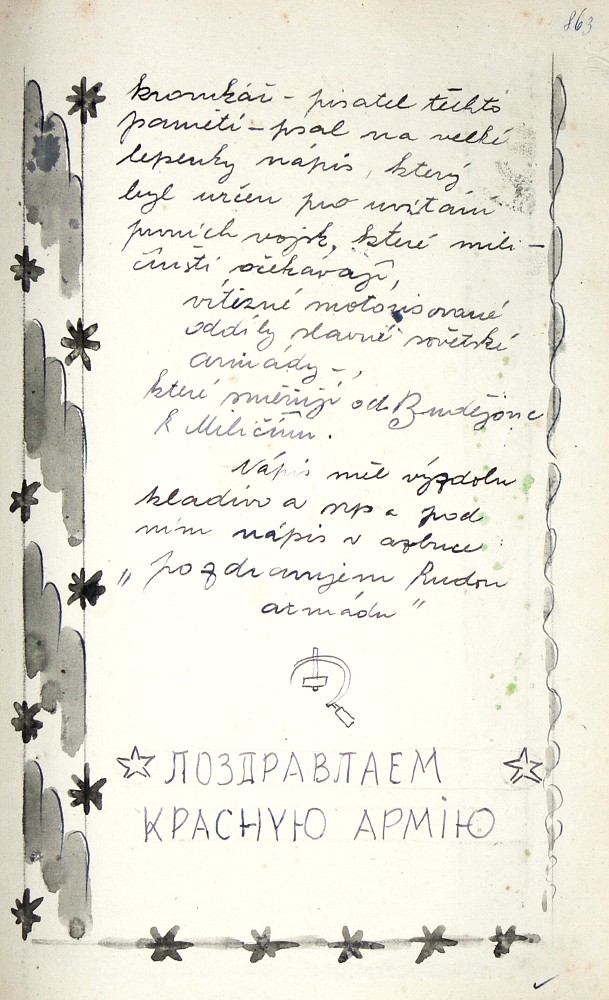 863
kronikář - pisatel těchto
pamětí - psal na velké
lepenky nápis, který
byl určen pro uvítání
prvních vojsk, které mili-
čínští očekávají,
vítězné motorisované
oddíly slavné sovětské
armády -,
které směřují od Budějovic
k Miličínu.
Nápis měl výzdobu
kladivo a srp a pod
ním nápis v azbuce
„pozdravujem Rudou
armádu"
ПОЗДРАВЛАЕМ
КРАСНУЮ АРМІЮ